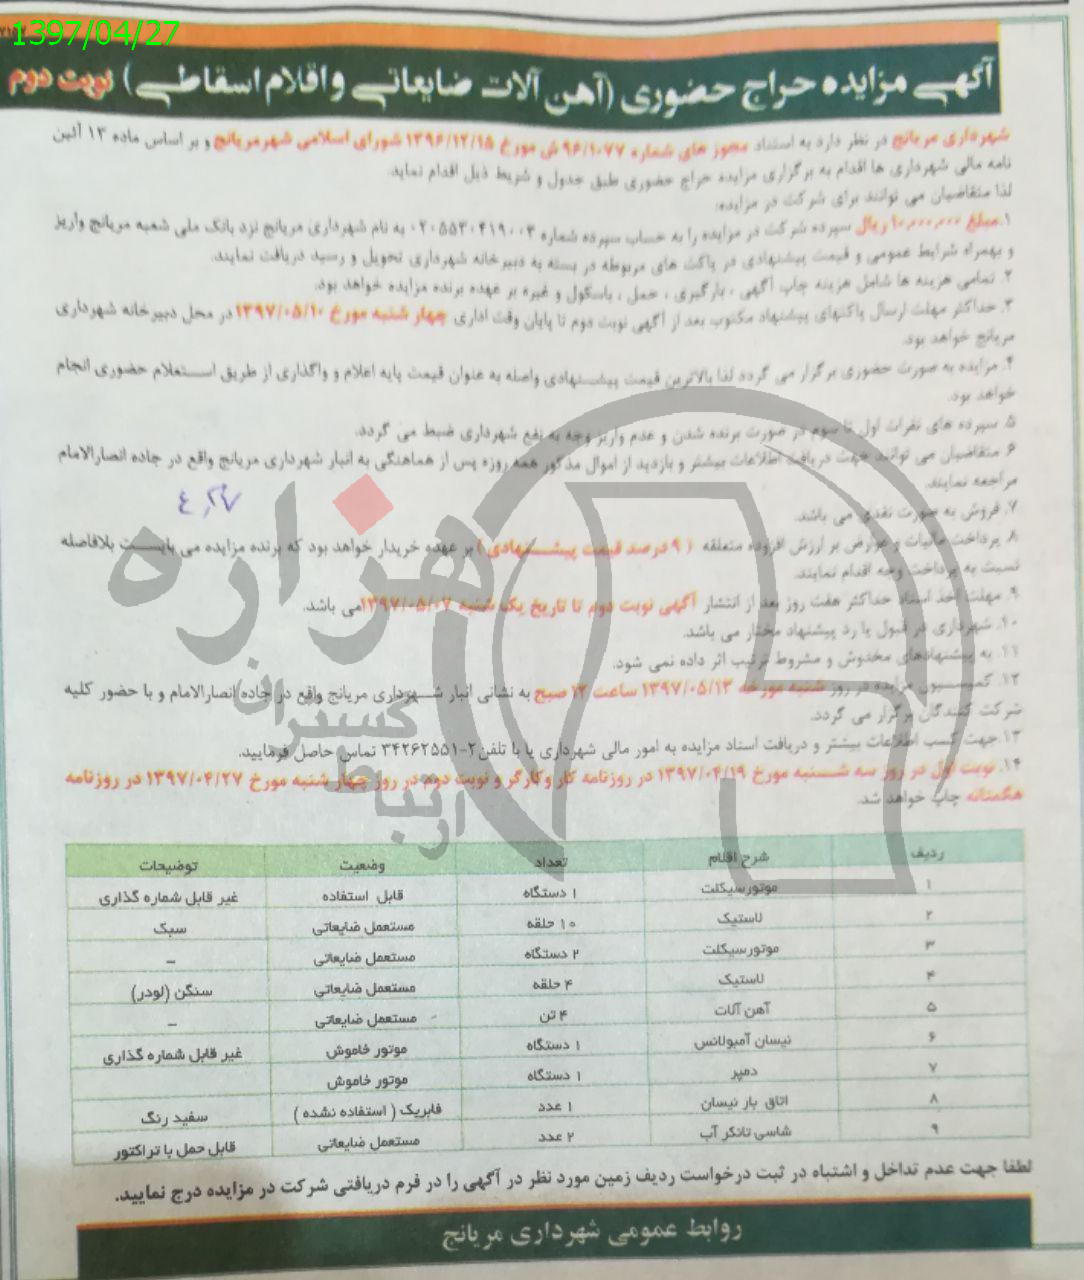 1397/04/27
آگهی مزایده حراج حضوری (آهن آلات ضایعاتی و اقلام اسقاطی) نوبت دوم
شهرداری مریانج در نظر دارد به استناد مجوز های شماره ۹۶/۱۰۷۷ ش مورخ ۱۳۹۶/۱۲/۱۵ شورای اسلامی شهر مریانج و بر اساس ماده ۱۳ آئین
نامه مالی شهرداری ها اقدام به برگزاری مزایده حراج حضوری طبق جدول و شریط ذیل اقدام نماید.
لذا متقاضیان می توانند برای شرکت در مزایده:
۱.مبلغ ۱۰,۰۰۰,۰۰۰ ریال سپرده شرکت در مزایده را به حساب سپرده شماره ۰۲۰۵۵۳۰۴۱۹۰۰۳ به نام شهرداری مریانج نزد بانک ملی شعبه مریانج واریز
و بهمراه شرایط عمومی و قیمت پیشنهادی در پاکت های مربوطه در بسته به دبیرخانه شهرداری تحویل و رسید دریافت نمایند.
۲. تمامی هزینه ها شامل هزینه چاپ آگهی ، بارگیری ، حمل ، باسکول و غیره بر عهده برنده مزایده خواهد بود.
۳. حداکثر مهلت ارسال پاکتهای پیشنهاد مکتوب بعد از آگهی نوبت دوم تا پایان وقت اداری چهار شنبه مورخ ۱۳۹۷/۰۵/۱۰ در محل دبیرخانه شهرداری
مریانج خواهد بود.
۴. مزایده به صورت حضوری برگزار می گردد لذا بالاترین قیمت پیشنهادی واصله به عنوان قیمت پایه اعلام و واگذاری از طریق استعلام حضوری انجام
خواهد بود.
۵. سپرده های نفرات اول تا سوم در صورت برنده شدن و عدم واریز وجه به نفع شهرداری ضبط می گردد.
۶. متقاضیان می توانند جهت دریافت اطلاعات بیشتر و بازدید از اموال مذکور همه روزه پس از هماهنگی به انبار شهرداری مریانج واقع در جاده انصارالامام
مراجعه نمایند.
۷. فروش به صورت نقدی می باشد.
۸. پرداخت مالیات و عوارض بر ارزش افزوده متعلقه (۹ درصد قیمت پیشنهادی) بر عهده خریدار خواهد بود که برنده مزایده می بایست بلافاصله
نسبت به پرداخت وجه اقدام نمایند.
۹. مهلت اخذ اسناد حداکثر هفت روز بعد از انتشار آگهی نوبت دوم تا تاریخ یک شنبه ۱۳۹۷/۰۵/۰۷ می باشد.
۱۰. شهرداری در قبول یا رد پیشنهاد مختار می باشد.
۱۱. به پیشنهادهای مخدوش و مشروط ترتیب اثر داده نمی شود.
۱۲. کمیسیون مزایده در روز شنبه مورخه ۱۳۹۷/۰۵/۱۳ ساعت ۱۲ صبح به نشانی انبار شهرداری مریانج واقع در جاده انصارالامام و با حضور کلیه
شرکت کنندگان برگزار می گردد.
۱۳.جهت کسب اطلاعات بیشتر و دریافت اسناد مزایده به امور مالی شهرداری یا با تلفن ۲-۳۴۲۶۲۵۵۱ تماس حاصل فرمایید.
۱۴. نوبت اول در روز سه شنبه مورخ ۱۳۹۷/۰۴/۱۹ در روزنامه کار و کارگر و نوبت دوم در روز چهار شنبه مورخ ۱۳۹۷/۰۴/۲۷ در روزنامه
هگمتانه چاپ خواهد شد.
هزاره
گستران
ارتباط
ردیف شرح اقلام تعداد وضعیت توضیحات
۱ موتورسیکلت ۱ دستگاه قابل استفاده غیر قابل شماره گذاری
۲ لاستیک ۱۰ حلقه مستعمل ضایعاتی سبک
۳ موتورسیکلت ۲ دستگاه مستعمل ضایعاتی –
۴ لاستیک ۴ حلقه مستعمل ضایعاتی سنگن (لودر)
۵ آهن آلات ۴ تن مستعمل ضایعاتی –
۶ نیسان آمبولانس ۱ دستگاه موتور خاموش غیر قابل شماره گذاری
۷ دمپر ۱ دستگاه موتور خاموش
۸ اتاق بار نیسان ۱ عدد فابریک ( استفاده نشده ) سفید رنگ
۹ شاسی تانکر آب ۲ عدد مستعمل ضایعاتی قابل حمل با تراکتور
لطفا جهت عدم تداخل و اشتباه در ثبت درخواست ردیف زمین مورد نظر در آگهی را در فرم دریافتی شرکت در مزایده درج نمایید.
روابط عمومی شهرداری مریانج